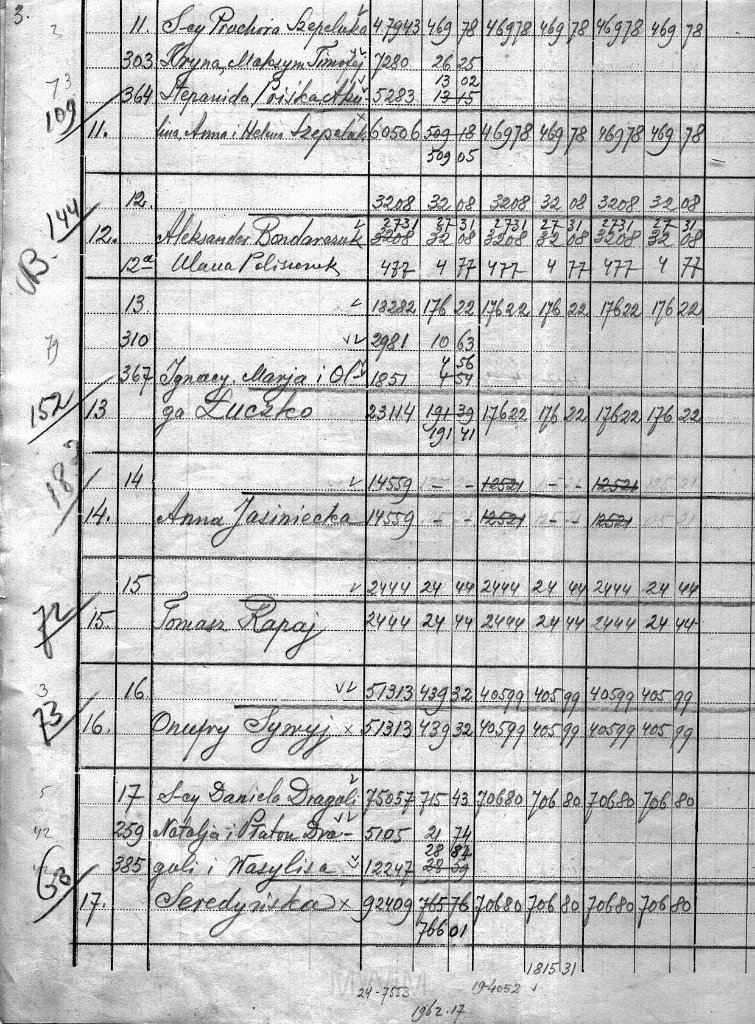 3.
11. S-cy Prochora Szepeluka 47943 469 78 46978 469 78 46978 469 78
303 Hryna, Maksym Timofij 7280 26 25
13 02
109 364 Stepanida 5283 13 15
11. lina, Anna i Helena Szepeluk 60506 509 18 46978 469 78 46978 469 78
509 05
12. 3208 32 08 3208 32 08 3208 32 08
144 2731 27 31 2731 27 31 2731 27 31
B. 12. Aleksander Bondarczuk 3208 32 08 3208 32 08 3208 32 08
12a 477 4 77 477 4 77 477 4 77
13 18282 176 22 17622 176 22 17622 176 22
310 2981 10 63
4 56
367 Ignacy, Marja i Ol- 1851 4 54
152 13 ga Łuczko 23114 191 39 17622 176 22 17622 176 22
191 41
14 14559 - - 12521 - - 12521
14. Anna Jasiniecka 14559 - - 12521 - - 12521
15 2444 24 44 2444 24 44 2444 24 44
72 15. Tomasz Rapaj 2444 24 44 2444 24 44 2444 24 44
3 16. 51313 439 32 40599 405 99 40599 405 99
73 16. Onufry Sywyj x 51313 439 32 40599 405 99 40599 405 99
5 17 S-cy Daniela Dragali 75057 715 43 70680 706 80 70680 706 80
42 259 Natalja i Płaton Dra- 5105 21 74
28 84
385 gali i Wasylisa 12247 28 59
63 17. Seredyńska x 92409 765 76 70680 706 80 70680 706 80
766 01
1815.31
24-7553 19-4052
1962.17